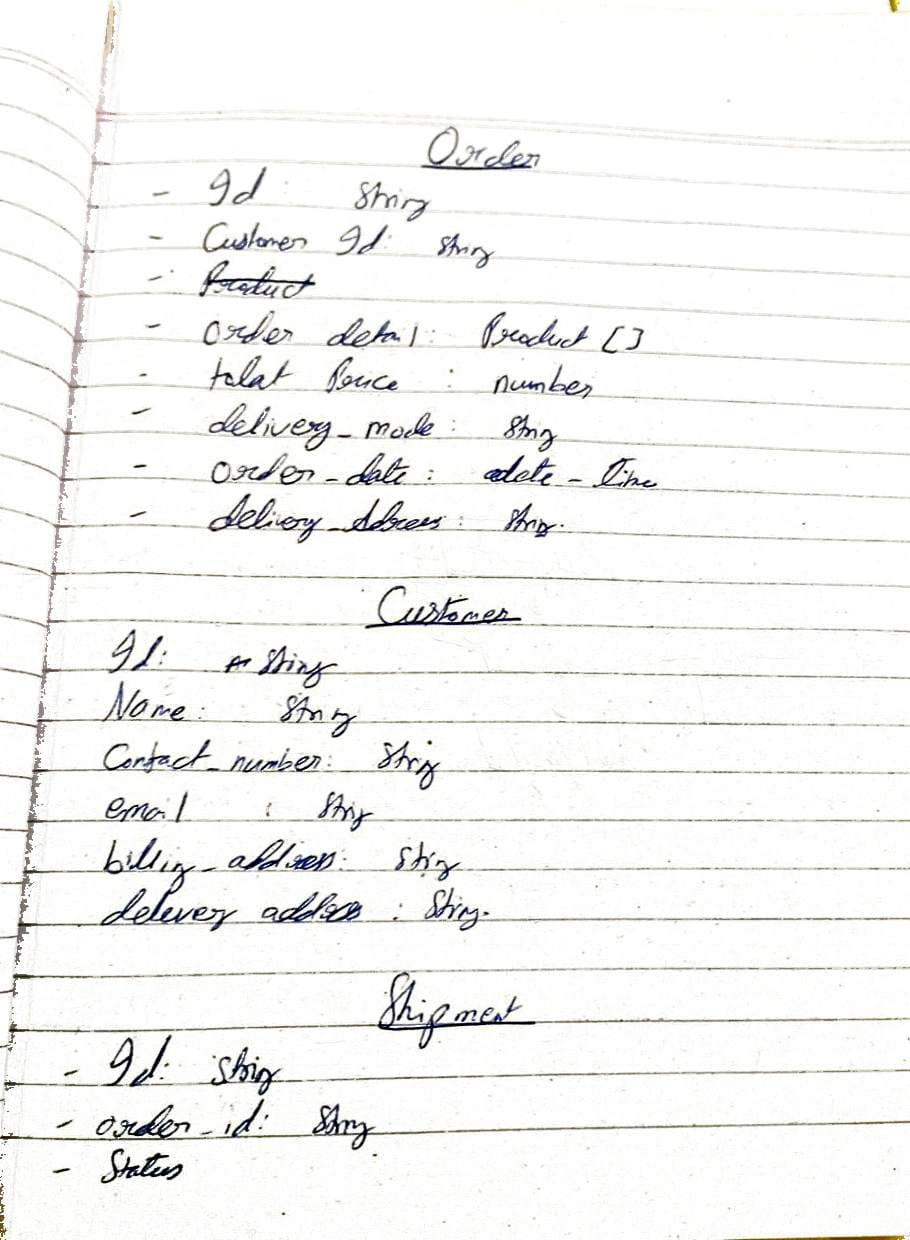 Order
- Id: String
- Customer Id: String
- Product
- order detail: Product []
- total Price : number
- delivery_mode: String
- order_date: date_Time
- delivery_Address: String.
Customer
Id: String
Name: String
Contact_number: String
email : String
billing_address: String
delivery address : String.
Shipment
- Id: String
- order_id: String
- Status